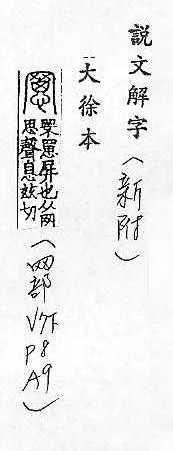 說文解字（新附）
--大徐本
罳
罘罳屏也从网
思聲息兹切
（网部 V7下 P8 A9）